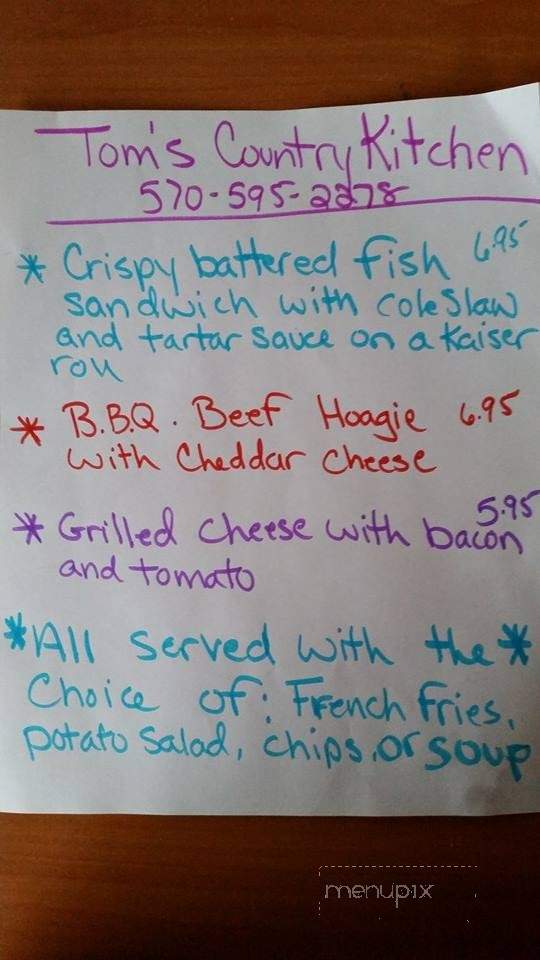 Tom's Country Kitchen
570-595-2278
* Crispy battered fish 6.95
sandwich with coleslaw
and tartar sauce on a Kaiser
roll
* B.B.Q. Beef Hoagie 6.95
with Cheddar cheese
5.95
* Grilled cheese with bacon
and tomato
*All served with the *
Choice of: French fries,
potato salad, chips, or soup
menupix